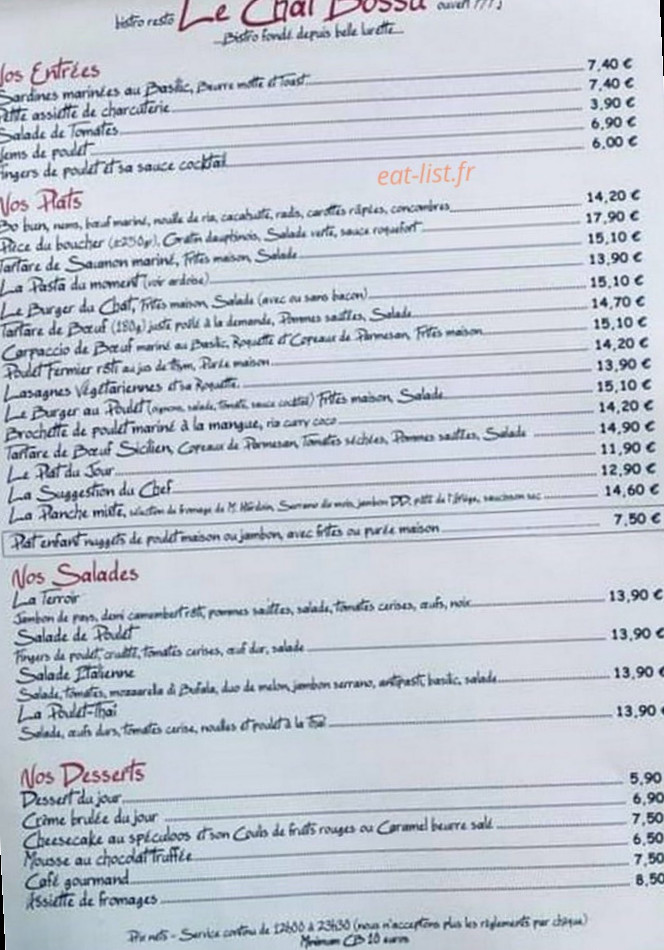 bistro resto Le Chat Bossu ouvert 7/7j
Bistro fondé depuis belle lurette
Nos Entrées
Sardines marinées au Basilic, Beurre motte et Toast 7,40 €
Petite assiette de charcuterie 7,40 €
Salade de Tomates 3,90 €
Nems de poulet 6,90 €
Fingers de poulet et sa sauce cocktail 6,00 €
eat-list.fr
Nos Plats
Bo bun, nems, bœuf mariné, nouille de riz, cacahuète, radis, carottes râpées, concombres 14,20 €
Pièce du boucher (±250gr), Gratin dauphinois, Salade verte, sauce roquefort 17,90 €
Tartare de Saumon mariné, Frites maison, Salade 15,10 €
La Pasta du moment (voir ardoise) 13,90 €
Le Burger du Chat, Frites maison, Salade (avec ou sans bacon) 15,10 €
Tartare de Bœuf (180g) juste poêlé à la demande, Pommes sautées, Salade 14,70 €
Carpaccio de Bœuf mariné au Basilic, Roquette et Copeaux de Parmesan, Frites maison 15,10 €
Poulet Fermier rôti au jus de thym, Purée maison 14,20 €
Lasagnes Végétariennes et sa Roquette 13,90 €
Le Burger au Poulet (oignons, salade, tomate, sauce cocktail) Frites maison, Salade 15,10 €
Brochette de poulet mariné à la mangue, riz curry coco 14,20 €
Tartare de Bœuf Sicilien, Copeaux de Parmesan, Tomates séchées, Pommes sautées, Salade 14,90 €
Le Plat du Jour 11,90 €
La Suggestion du Chef 12,90 €
La Planche mixte, sélection de fromage de M. Serrano du mois, jambon DD, pâté de l'Ariège, saucisson sec 14,60 €
Plat enfant nuggets de poulet maison ou jambon, avec frites ou purée maison 7,50 €
Nos Salades
La Terroir
Jambon de pays, demi camembert rôti, pommes sautées, salade, tomates cerises, œufs, noix 13,90 €
Salade de Poulet
Fingers de poulet, crudité, tomates cerises, œuf dur, salade 13,90 €
Salade Italienne
Salade, tomates, mozzarella di Bufala, duo de melon, jambon serrano, antipasti, basilic, salade 13,90 €
La Poulet-Thaï
Salade, œufs durs, tomates cerise, nouilles et poulet à la Thaï 13,90 €
Nos Desserts
Dessert du jour 5,90
Crème brulée du jour 6,90
Cheesecake au spéculoos et son Coulis de fruits rouges ou Caramel beurre salé 7,50
Mousse au chocolat truffée 6,50
Café gourmand 7,50
Assiette de fromages 8,50
Prix nets - Service continu de 12h00 à 23h30 (nous n'acceptons plus les règlements par chèque)
Minimum CB 10 euros